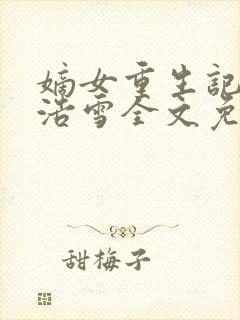 嫡女重生記
浩雪全文免
甜梅子